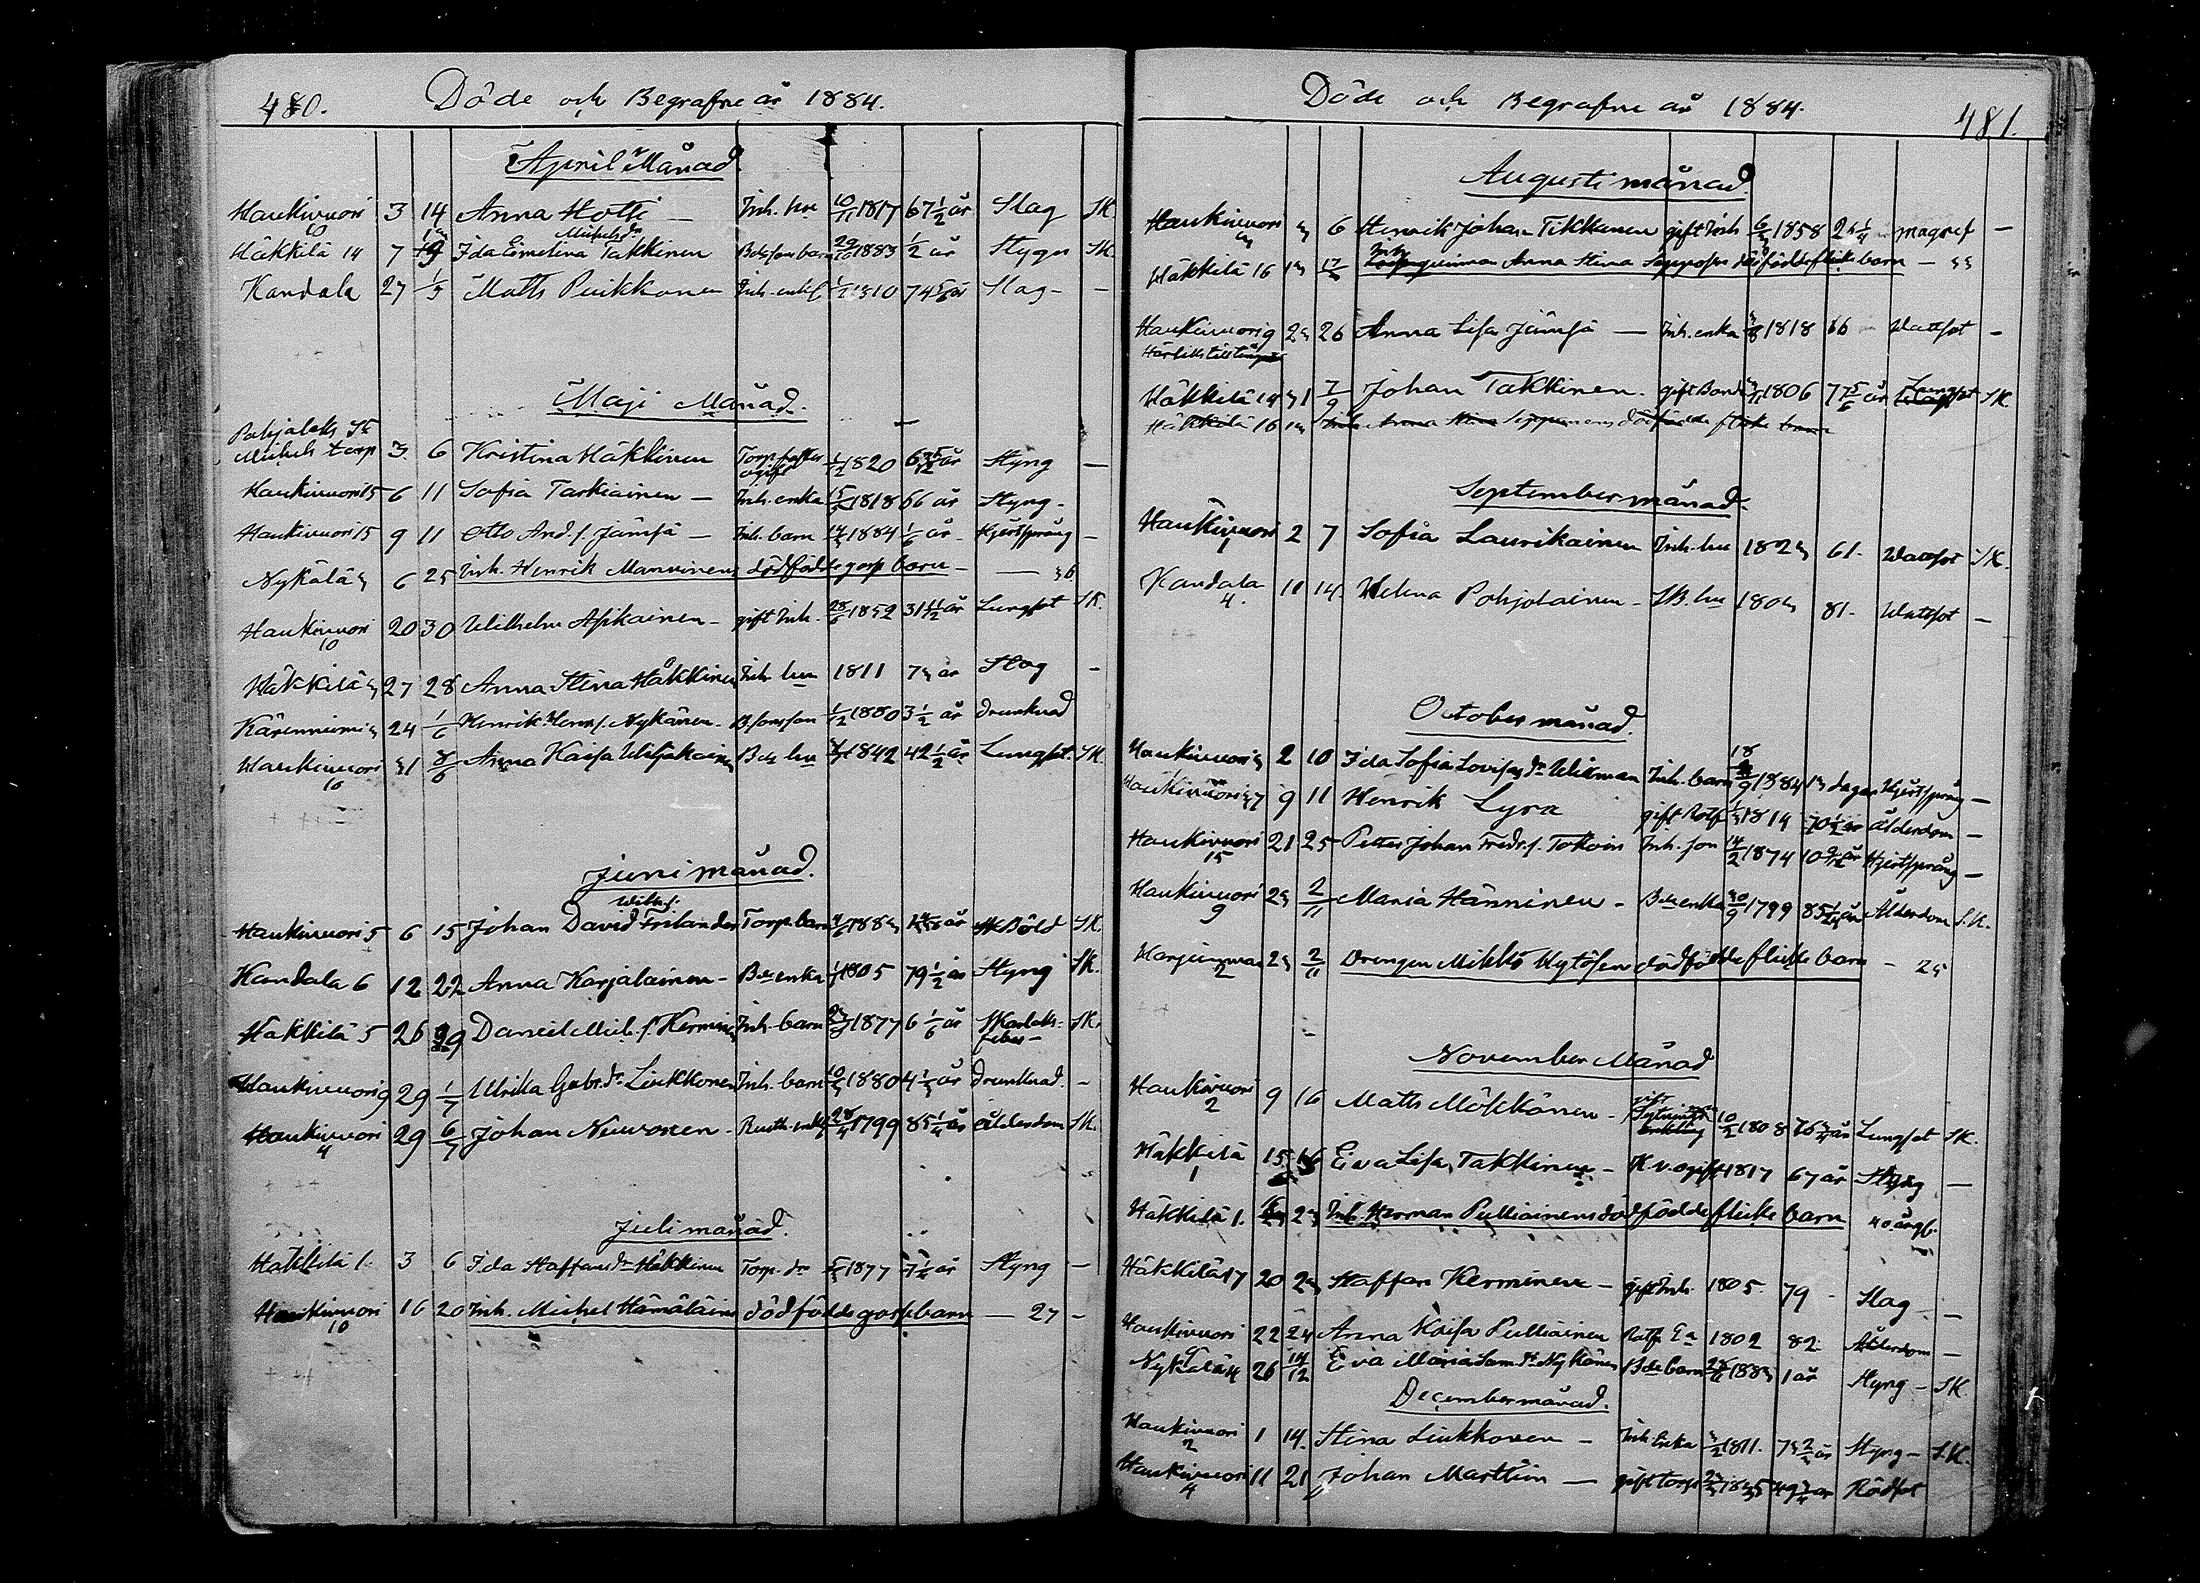 480. Döde och Begrafne år 1884.
April Månad.
Haukivuori 10 3 14 Anna Hotti — Inh. hu 10/11 1817 67 1/2 år Slag SK.
Häkkilä 14 7 19 Ida Eimelina Michelsdr Takkinen Bdsson barn 1883 1/2 år Stygn SK.
Kandala 27 1/5 Matts Puikkonen Inh. enkl. 1810 74 år Slag - -
Maji Månad.
Pohjalaks
Michels torp 3 6 Kristina Häkkinen ogift 1/2 1820 år Styng —
Haukivuori 15 6 11 Sofia Tarkiainen — Inh. enka 1818 66 år Styng -
Haukivuori 15 9 11 Otto And. s. Jämsä — Inh. barn 1884 1/6 år Hjertsprång -
Nykälä 6 25 Inh. Henrik Manninens dödfödde goss barn — 36
Haukivuori 10 20 30 Wilhelm Asikainen - gift Inh. 28/6 1852 31 11/12 år Lungsot SK.
Häkkilä 27 28 Anna Stina Häkkinen Inh. hu 1811 73 år Slag -
Kärenniemi 24 1/6 Henrik Henr. s. Nykänen - 1/12 1880 3 1/2 år drunknad
Haukivuori 10 31 8/6 Anna Kaisa Bde hu 1842 42 1/2 år Lungsot. SK.
Juni månad.
Haukivuori 5 6 15 Johan David Wilh. s. Frilander Torp. barn 1883 år Håll SK.
Kandala 6 12 22 Anna Karjalainen - Bde enka 1805 79 1/2 år Styng SK.
Häkkilä 5 26 29 Daniel Mich. s. Kerminen Inh. barn 1877 6 1/6 år Skarlaks-feber - SK.
Haukivuori 9 29 1/7 Ulrika Gabr. dr Liukkonen Inh. barn 1880 4 1/3 år drunknad. -
Haukivuori 4 29 6/7 Johan Nuuronen - Rusth. enkl. 28/4 1799 85 1/4 år ålderdom SK.
Juli månad.
Häkkilä 1. 3 6 Ida Staffansdr Häkkinen Torp. dr 1877 7 år Styng -
Haukivuori 10 16 20 Inh. Michel Hämäläins dödfödde gossbarn — 27 -
Döde och Begrafne år 1884. 481.
Augusti månad.
Haukivuori 3 6 Henrik Johan Tikkanen gift Inh 1858 26 1/4 magref —
Häkkilä 16 13 17 Inh. Anna Stina Seppäsens dödfödde flicke barn — 33
Haukivuori 9 23 26 Anna Lisa Jämsä — Inh. enka 1818 66 Wattsot -
Häkkilä 14 31 7/9 Johan Takkinen. gift Bonde 1806 77 5/6 år Lungsot SK.
Häkkilä 16 13 Inh. Anna Stina Seppänens dödfödde flicke barn
September månad.
Haukivuori 1 2 7 Sofia Laurikainen Inh. hu 1823 61. Wattsot SK.
Kandala 4. 11 14 Helena Pohjolainen - SB. hu 1803 81. Wattsot —
October månad.
Haukivuori 3 2 10 Ida Sofia Lovisas dr Wikman Inh. barn 18/9 1884 13 dagar Hjertsprång —
Haukivuori 9 11 Henrik Lyra gift Rotf 1814 70 1/2 år ålderdom —
Haukivuori 15 21 25 Petter Johan Fredr. s. Tokoin Inh. son 14/2 1874 10 år Hjertsprång —
Haukivuori 9 23 2/11 Maria Hänninen - Bde enka 30/9 1799 85 år Ålderdom S.K.
Harjumaa 2 23 2/11 Drengen Mikko Kytösen dödfödde flicke barn - 25
November Månad
Haukivuori 2 9 16 Matts Mökkönen - gift Sytnings 10/2 1808 76 3/4 år Lungsot SK.
Häkkilä 1 15 16 Eva Lisa Takkinen - K. v. ogift 1817 67 år Styng —
Häkkilä 1. 23 Inh. Herman Pulliainens dödfödde flicke barn 40 årg.
Häkkilä 17 20 23 Staffan Kerminen - gift Inh. 1805. 79 - Slag —
Haukivuori 9 22 24 Anna Kaisa Pulliainen Rotf. Ea 1802 82 Ålderdom —
Nykälä 4 26 14/12 Eva Maria Sam. dr Nykänen Bde barn 1883 1 år Styng - SK
December månad.
Haukivuori 2 1 14. Stina Liukkonen - Inh. Enka 1811. 73 år Styng - S.K.
Haukivuori 4 11 21 Johan Marttin — gift torp 1835 49 år Rödsot